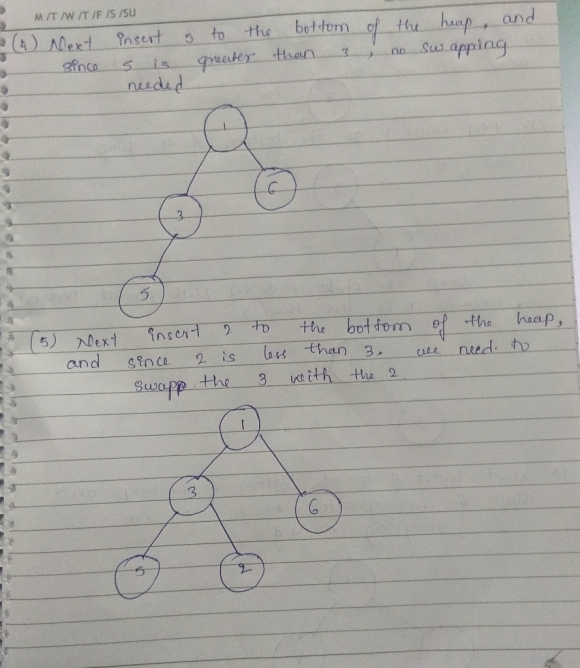 M/T/W/T/F/S/SU
(4) Next insert 5 to the bottom of the heap, and
since 5 is greater than 3, no swapping
needed
1
6
3
5
(5) Next insert 2 to the bottom of the heap,
and since 2 is less than 3. we need to
swapp the 3 with the 2
1
3
6
5
2